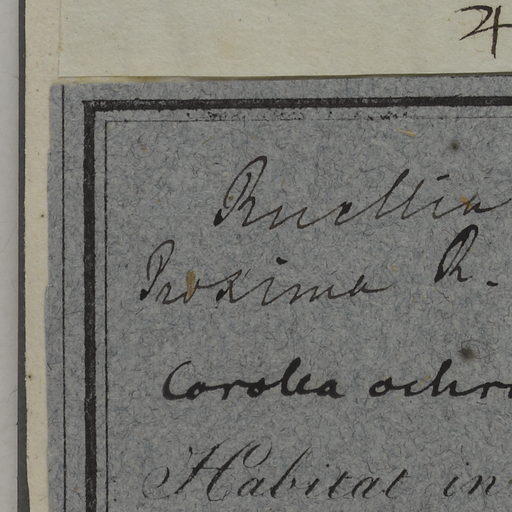 4
Ruellia
Proxima R.
Corolla ochr
Habitat in